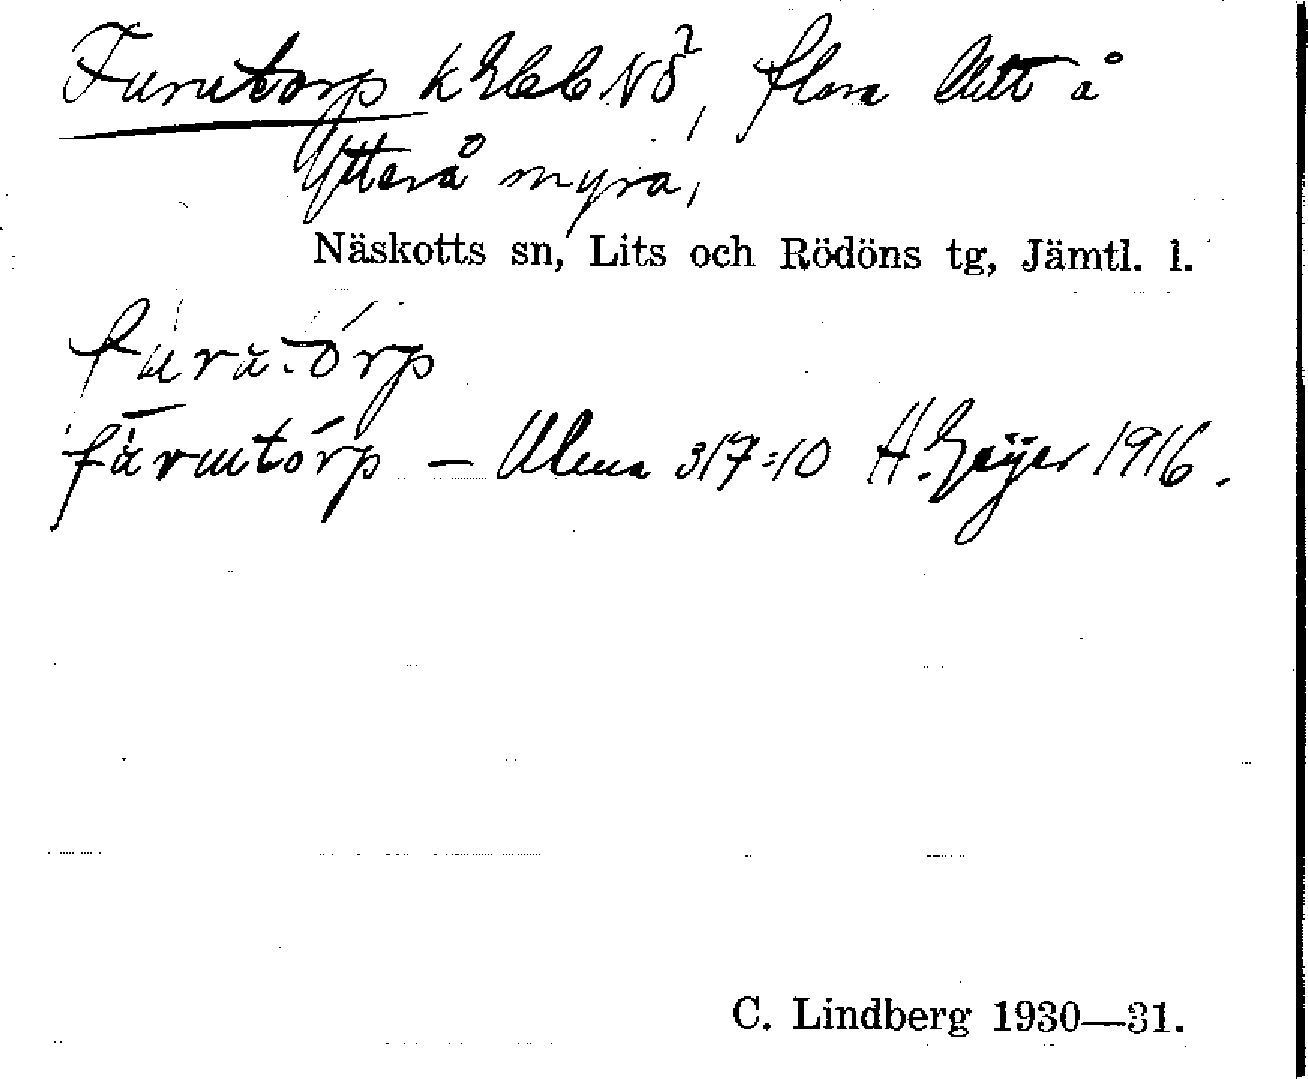 Furutorp k Ebb NÖ, flera lht å
Ytterå myra,
Näskotts sn, Lits och Rödöns tg, Jämtl. l.
furutórp
fùrutórp – Ulma 317:10 H. Geijer 1916.
C. Lindberg 1930—31.